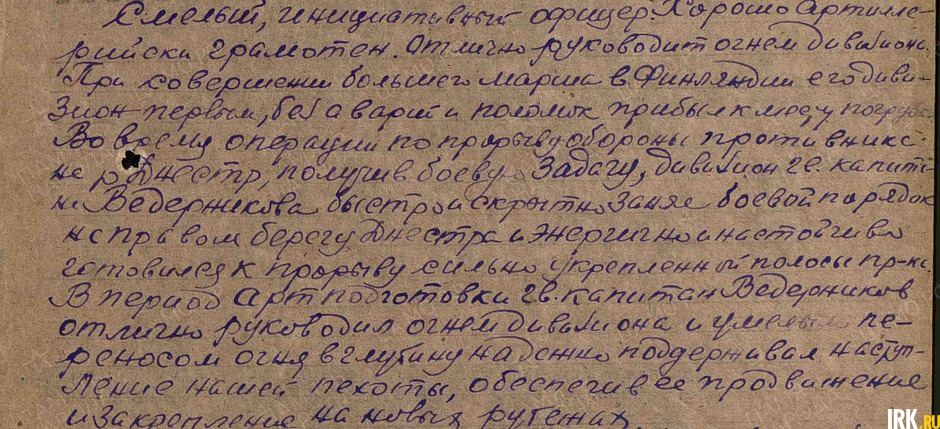 Смелый, инициативный офицер. Хорошо артилле-
рийски грамотен. Отлично руководит огнем дивизиона.
При совершении большого марша в Финляндии его диви-
зион первым, без аварий и поломок прибыл к месту погрузки
Во время операции по прорыву обороны противника
на р. Днестр, получив боевую задачу, дивизион гв. капита-
на Ведерникова быстро и скрытно занял боевой порядок
на правом берегу Днестра и энергично и настойчиво
готовился к прорыву сильно укрепленный полосы пр-ка.
В период артподготовки гв. капитан Ведерников
отлично руководил огнем дивизиона и умелым пе-
реносом огня в глубину надежно поддерживал наступ-
ление нашей пехоты, обеспечив ее продвижение
и закрепление на новых рубежах.
IRK.RU